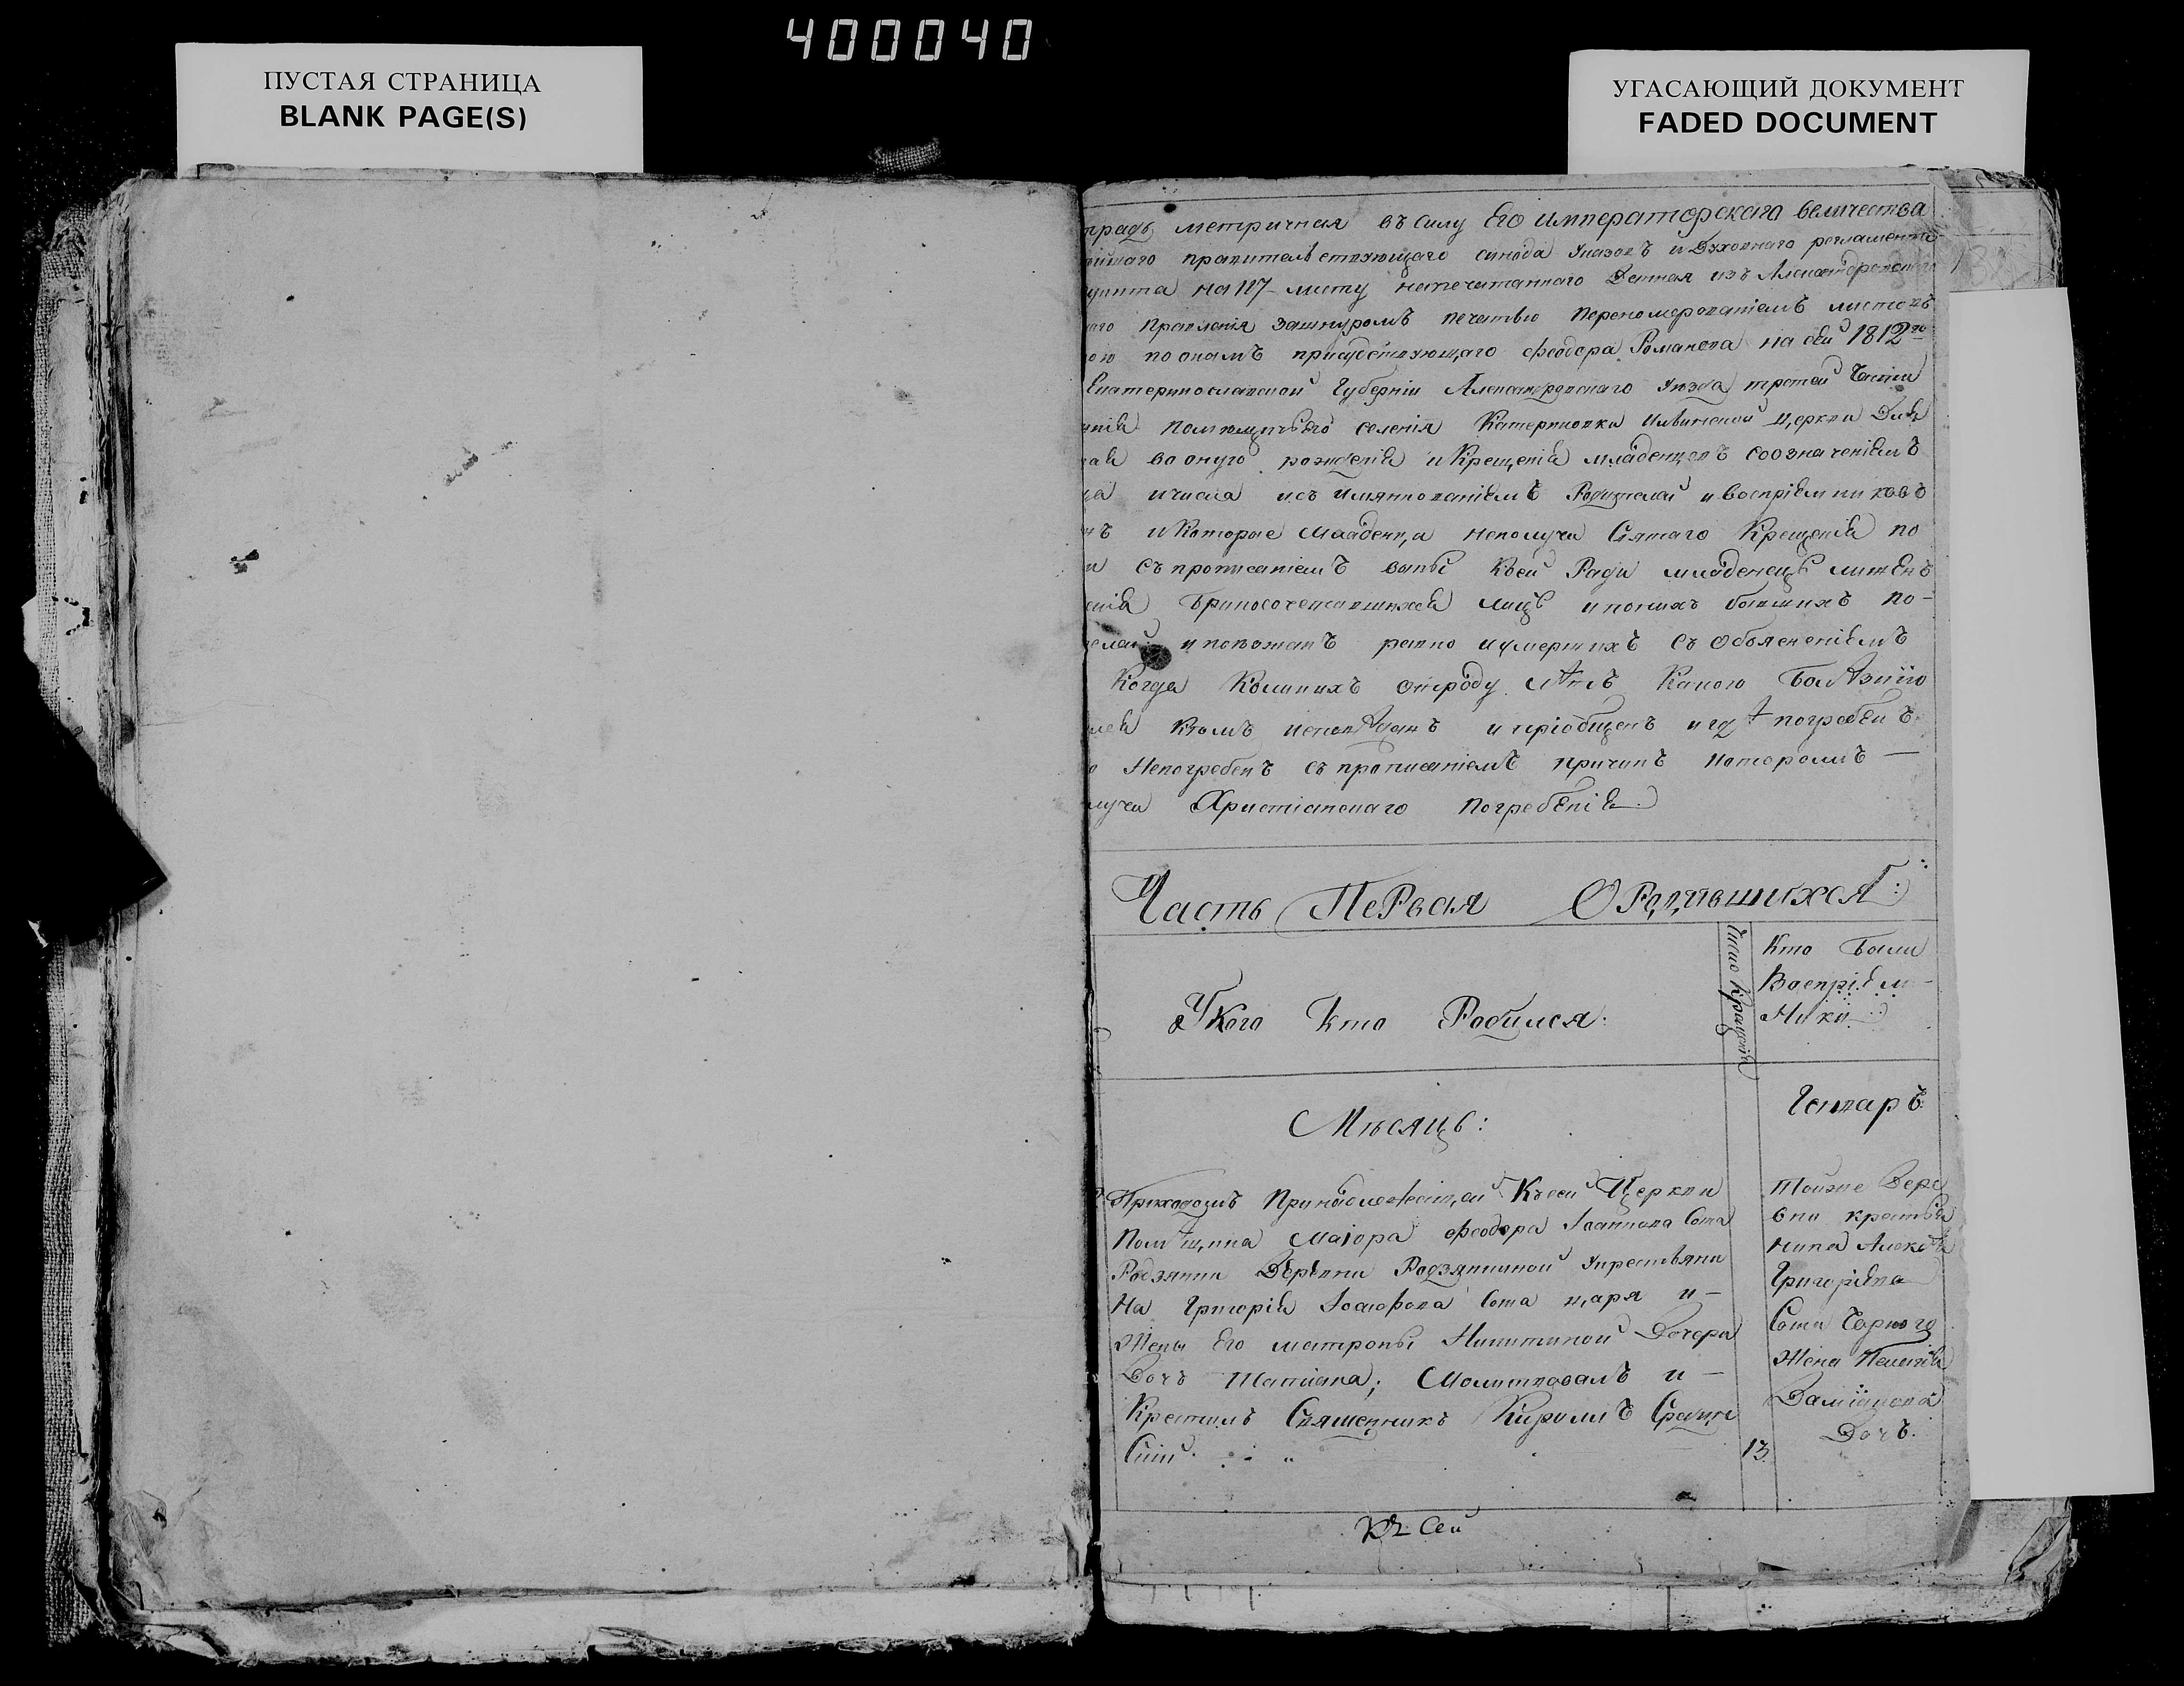 400040
ПУСТАЯ СТРАНИЦА
BLANK PAGE(S)
УГАСАЮЩИЙ ДОКУМЕНТ
FADED DOCUMENT
метричная въ силу Его императорскаго величества
правительствующаго синода указовъ и Духовнаго регламента
пункта на 117 листу напечатаннаго Данная изъ Александровскаго
Правленія зашнуромъ печатью перономерованіемъ листовъ
по онамъ присудствующаго Феодора Романова на сей 1812го
Екатеринославской Губерніи Александровскаго уезда третей Части
помещичьяго селенія Катериновки Церкви Для
во оную рожденія и Крещенія младенцовъ соозначеніемъ
ичисла исъ имяннованіемъ Родителей и воспріемниковъ
и Которые младенца неполуча Святаго Крещенія по
съ прописаніемъ вины Коей Ради младенецъ лишенъ
Бракосочетавшихся лицъ и поних бывшихъ по-
и поезжанъ равно иумершихъ съ Объясненіемъ
Когда Колинихъ отроду лѣтъ Какою Болѣзнію
Кѣмъ исповѣданъ и пріобщенъ и гдѣ погребенъ
Непогребенъ съ прописаніемъ причинъ
Христіанскаго погребенія
Часть Первая О Родившихся:
У Кого Кто Родился:
Число Крещенія
Кто Были
Воспріем-
Ники
Мѣсяцъ:
Генваръ
Приходомъ Принадлежащей Ксей Церкви
Помѣщика Маіора Феодора Іоаннова Сына
Родзянки Деревни Родзянкиной укрестьяни
На Григорія Сына царя и-
Жены Его матроны Никитиной Дочери
Дочъ Татиана; Молитвовалъ и-
Крестилъ Священникъ Кирилъ
13
Тойже Дере
вни крестья
нина Алексѣя
Григоріева
Сына Чорного
Жена Пелагія
Даміанова
Дочъ.
Сей